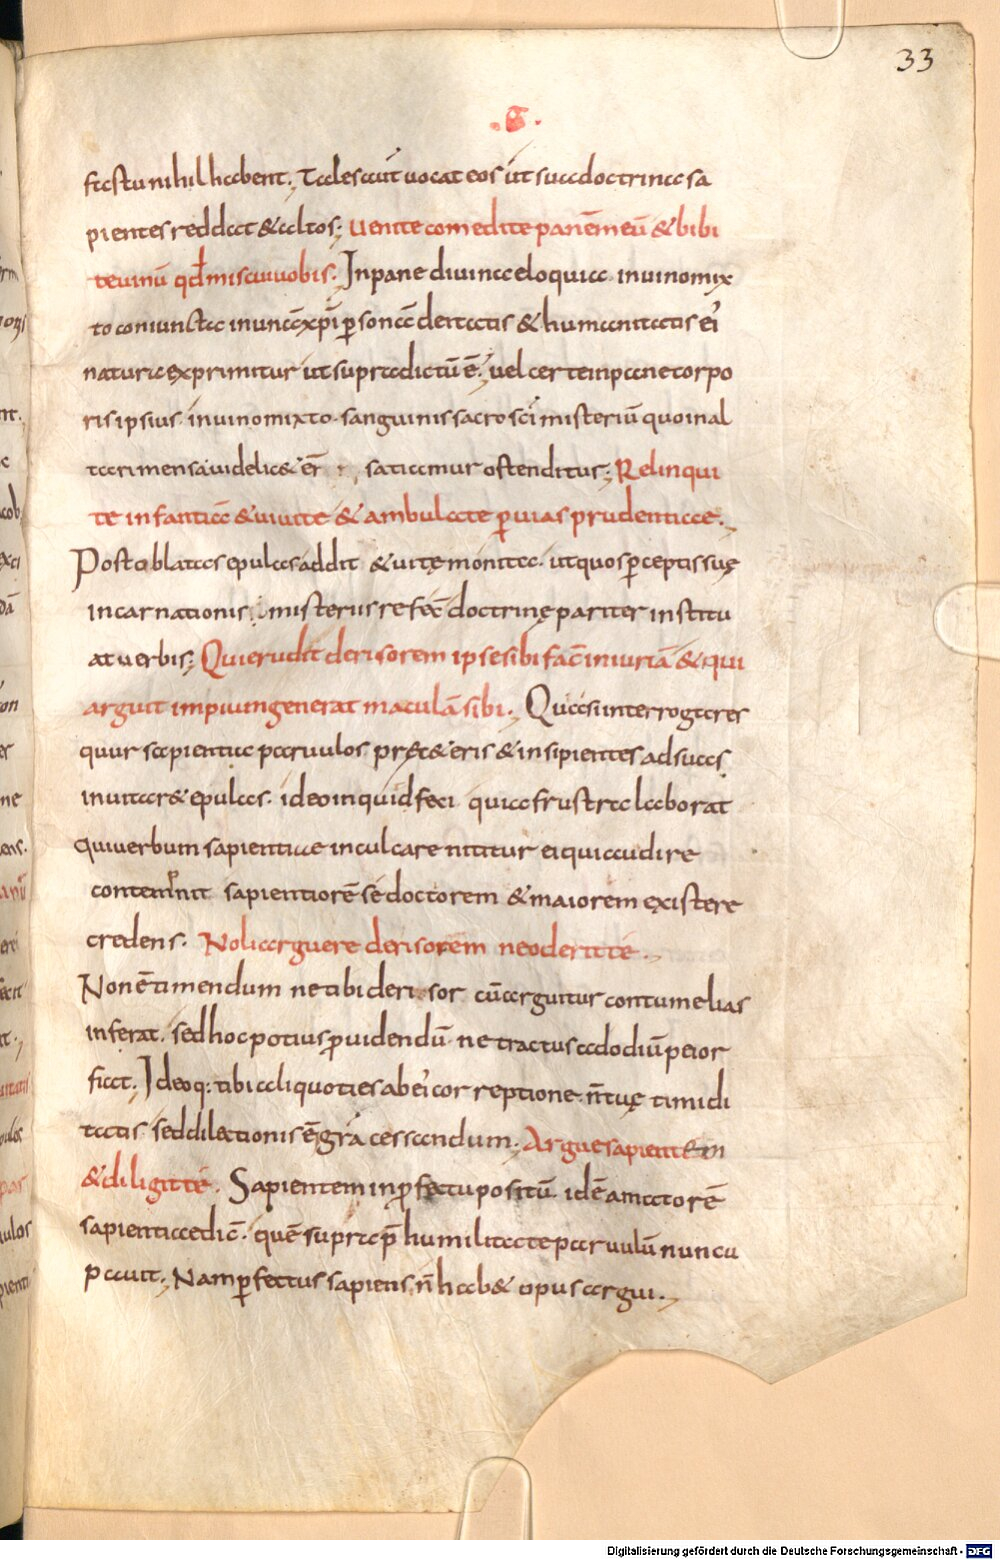 33
fastu nihil habent; Tales aut̄ uocat eos ut sua doctrina sa
pientes reddat & altos; Uenite comedite panē meū & bibi
te uinū qđ miscui uobis. In pane diuina eloquia in uino mix
to coniuncta in unā xp̄i ꝑsonā deitatis & humanitatis ei
naturae exprimitur ut supradictū ē; uel certe in pane corpo
ris ipsius in uino mixto sanguinis sacrosci misteriū quo in al
taris mensa uidelic& ei satiamur ostenditur; Relinqui
te infantiā & uiuite & ambulate ꝑ uias prudentiae.
Post oblatas epulas addit & uitę monita ut quos ꝑceptis suę
incarnationis misteriis refec̄ doctrinę pariter institu
at uerbis; Qui erudit derisorem ipse sibi fac̄ iniuriā & qui
arguit impium generat maculā sibi. Quasi interrogares
quur sapientia paruulos pręt&eris & insipientes ad suas
inuitar& epulas. ideo inquid feci quia frustra laborat
qui uerbum sapientiae inculcare nititur ei qui audire
contemnit sapientiorē se doctorem & maiorem existere
credens. Noli arguere derisorem ne oderit te.
Non ē timendum ne tibi derisor cū arguitur contumelias
inferat. sed hoc potius ꝓuidendū ne tractus ad odiū peior
fiat. Ideoq: tibi aliquoties ab ei correptione n̄ tuę timidi
tatis sed dilectionis ē gr̄a cessandum; Argue sapientem
& diligit te. Sapientem in ꝓfectu positū idē amatorē
sapientiae dic̄ quē supra p̄ humilitate paruulū nuncu
pauit; Nam ꝑfectus sapiens n̄ hab& opus argui.
Digitalisierung gefördert durch die Deutsche Forschungsgemeinschaft - DFG